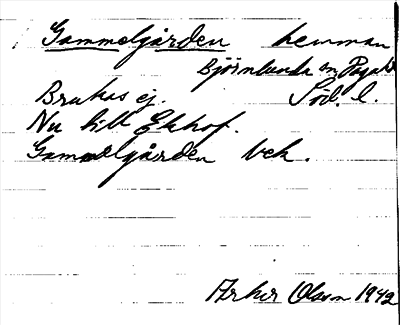 Gammelgården hemman
Björnlunda sn
Söd. l.
Brukas ej.
Nu till Ekhof.
Gammelgården bek.
Olsson 1942